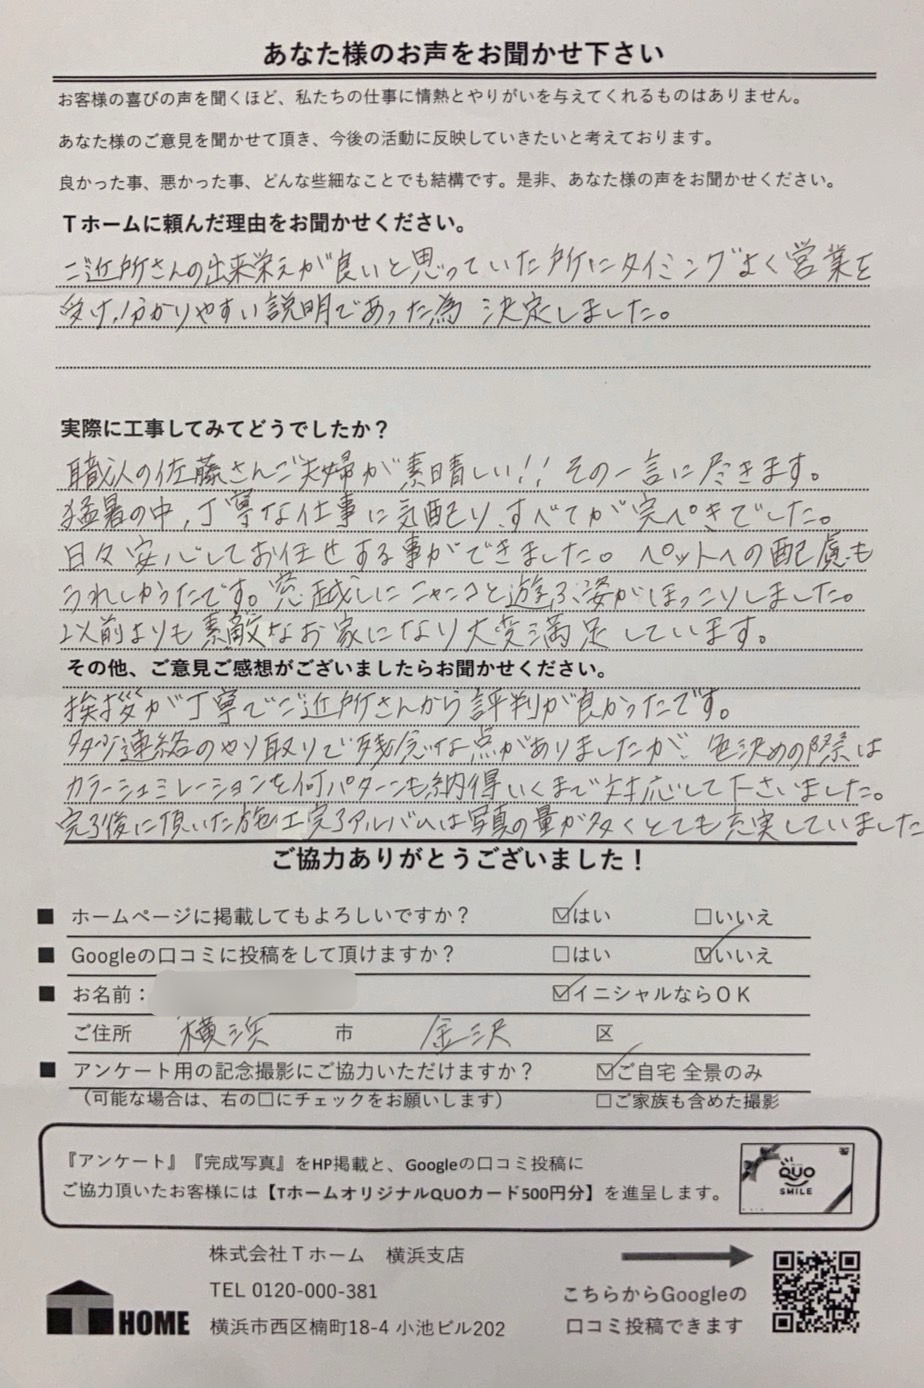 あなた様のお声をお聞かせ下さい
お客様の喜びの声を聞くほど、私たちの仕事に情熱とやりがいを与えてくれるものはありません。
あなた様のご意見を聞かせて頂き、今後の活動に反映していきたいと考えております。
良かった事、悪かった事、どんな些細なことでも結構です。是非、あなた様の声をお聞かせください。
Tホームに頼んだ理由をお聞かせください。
ご近所さんの出来栄えが良いと思っていた所にタイミングよく営業を
受け、分かりやすい説明であった為 決定しました。
実際に工事してみてどうでしたか？
職人の佐藤さんご夫婦が素晴しい!! その一言に尽きます。
猛暑の中、丁寧な仕事に気配り、すべてが完ぺきでした。
日々安心してお任せする事ができました。ペットへの配慮も
うれしかったです。窓越しにニャンコと遊ぶ姿がほっこりしました。
以前よりも素敵なお家になり大変満足しています。
その他、ご意見ご感想がございましたらお聞かせください。
挨拶が丁寧でご近所さんから評判が良かったです。
多少連絡のやり取りで残念な点がありましたが、色決めの際は
カラーシュミレーションを何パターンも納得いくまで対応して下さいました。
完了後に頂いた施工完了アルバムは写真の量が多くとても充実していました
ご協力ありがとうございました！
■ ホームページに掲載してもよろしいですか？ ☑はい □いいえ
■ Googleの口コミに投稿をして頂けますか？ □はい ☑いいえ
■ お名前： ☑イニシャルならOK
ご住所 横浜 市 金沢 区
■ アンケート用の記念撮影にご協力いただけますか？ ☑ご自宅 全景のみ
（可能な場合は、右の□にチェックをお願いします） □ご家族も含めた撮影
『アンケート』『完成写真』をHP掲載と、Googleの口コミ投稿に
ご協力頂いたお客様には【TホームオリジナルQUOカード500円分】を進呈します。
QUO
SMILE
株式会社Tホーム 横浜支店
TEL 0120-000-381
横浜市西区楠町18-4 小池ビル202
T HOME
こちらからGoogleの
口コミ投稿できます